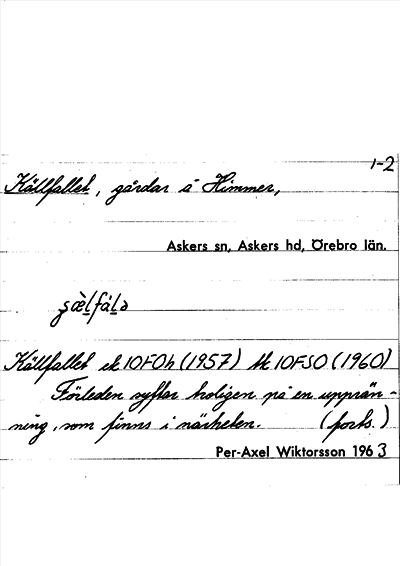 1-2
Källfallet, gårdar å Himmer,
Askers sn, Askers hd, Örebro län.
Källfallet ek 10FOh (1957) tk 10FSO (1960)
Förleden syftar troligen på en upprän-
ning, som finns i närheten. (forts.)
Per-Axel Wiktorsson 1963